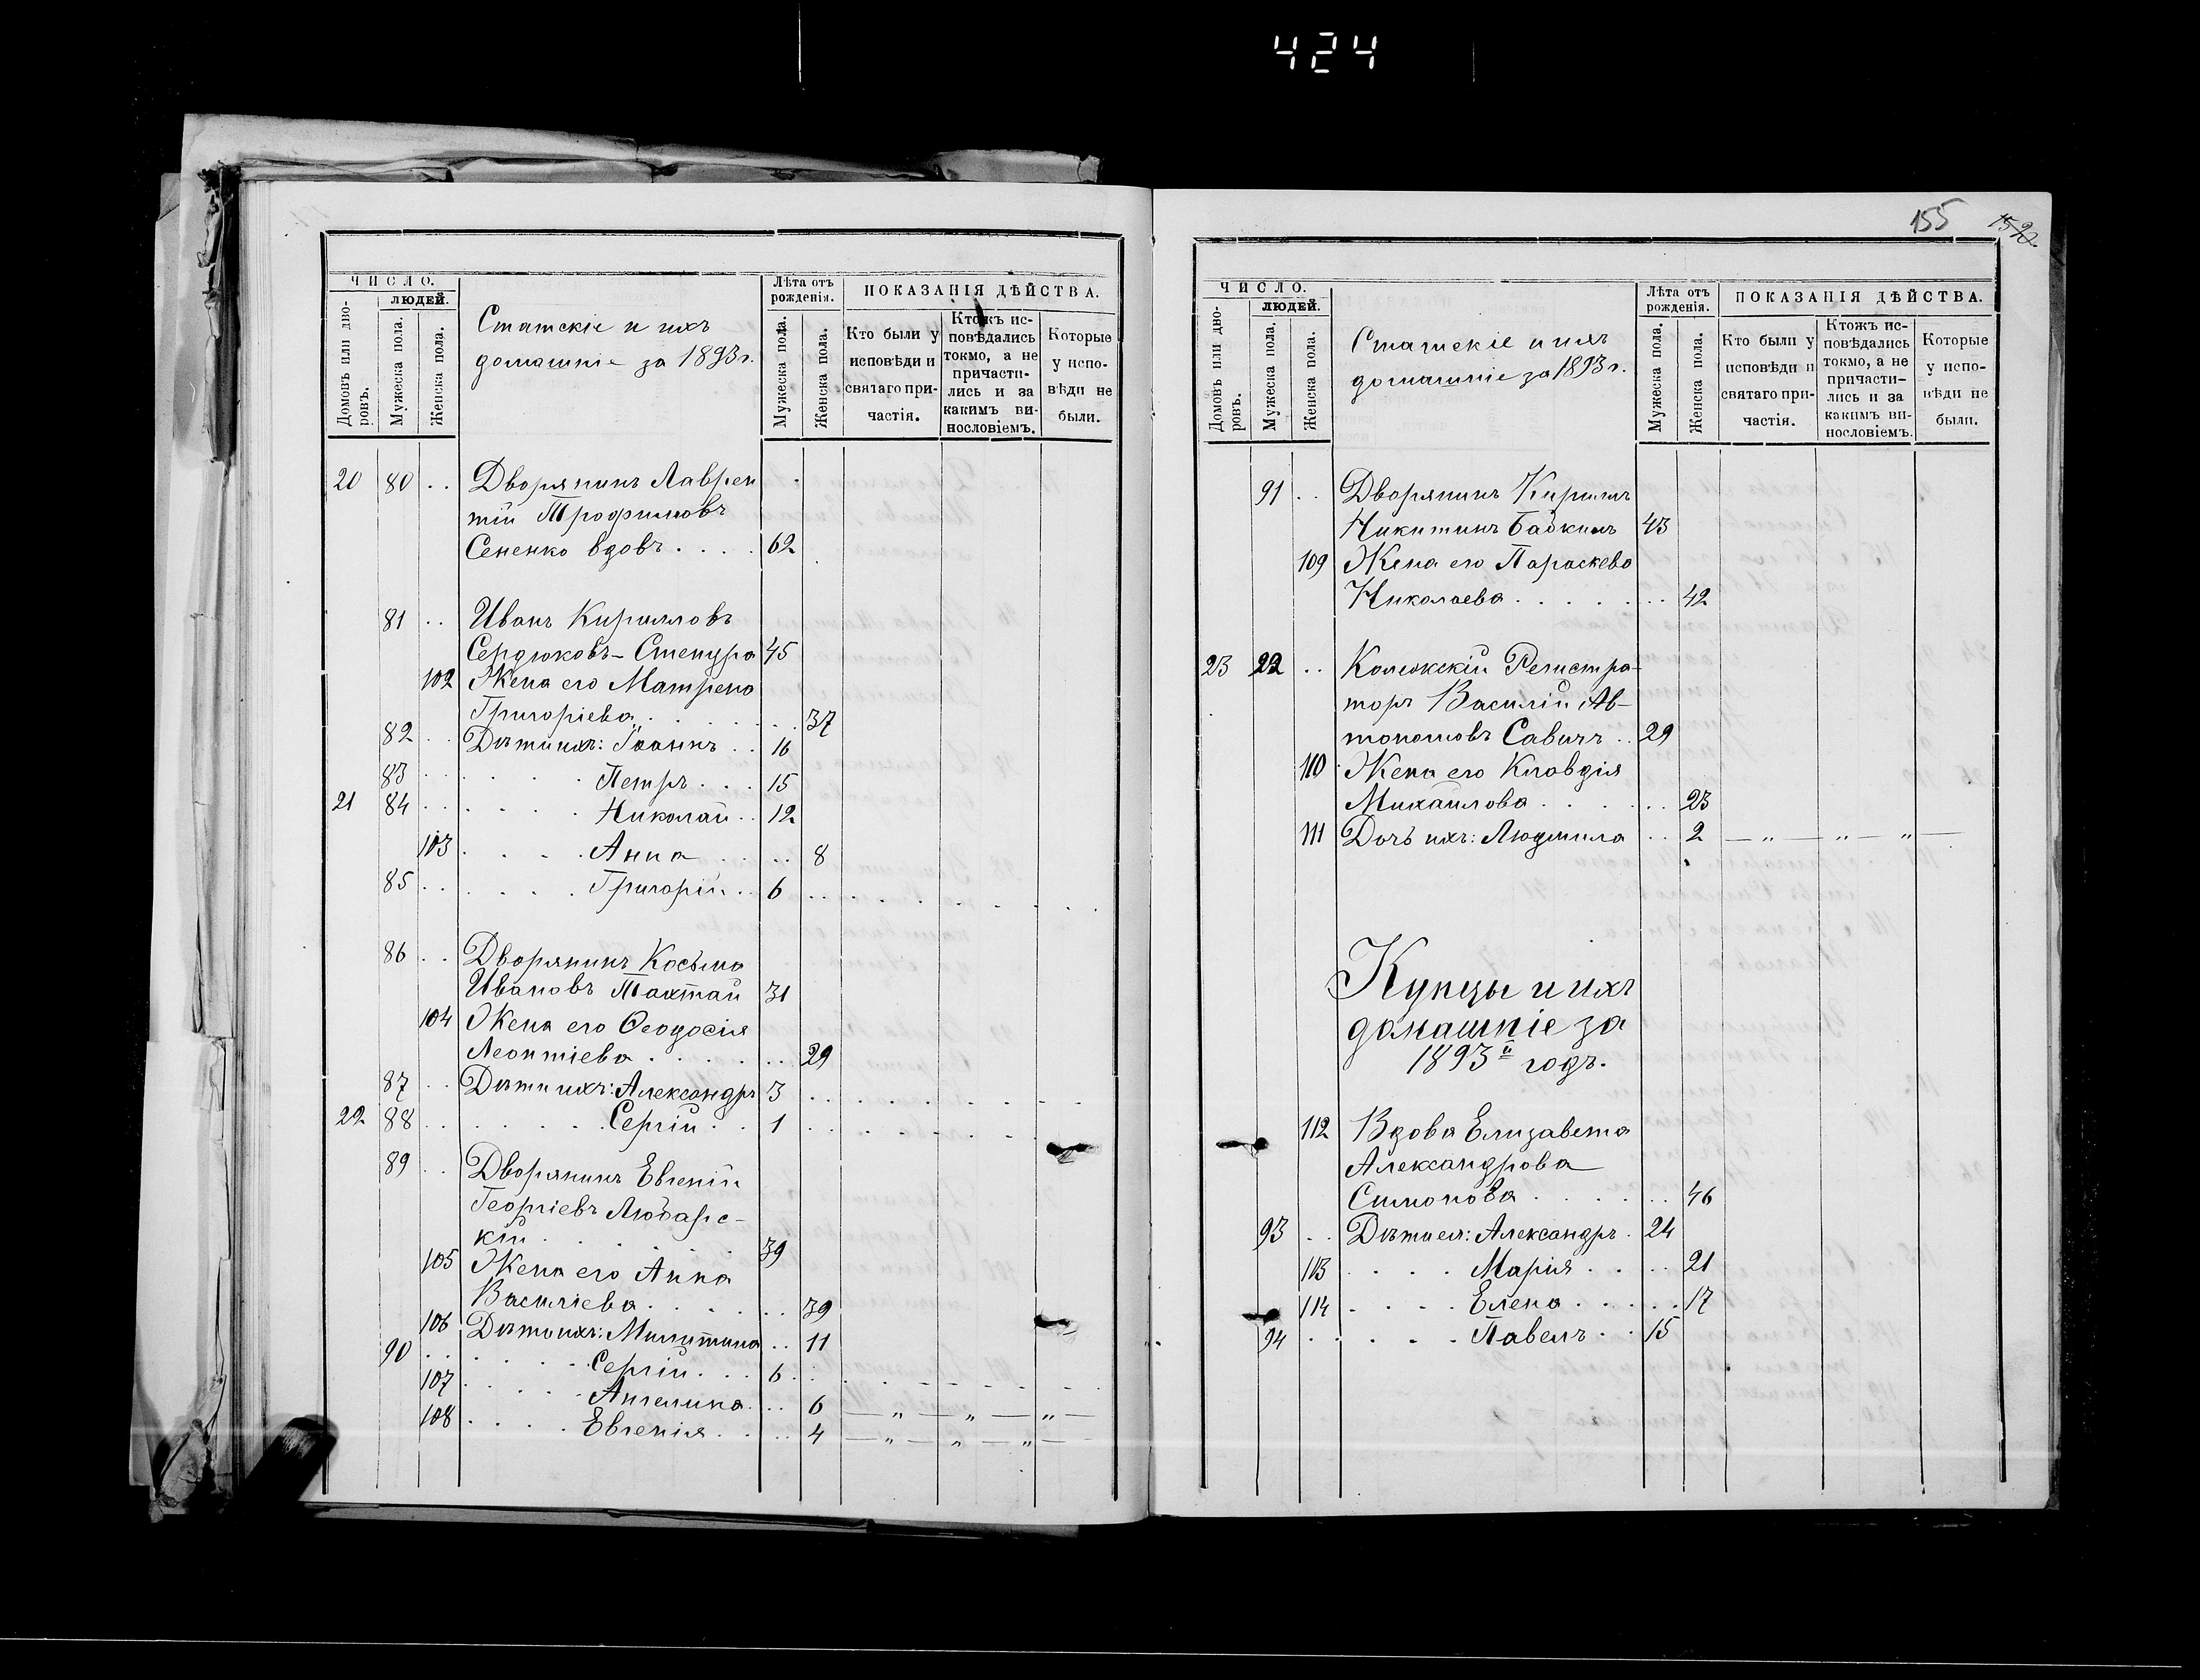 424
ЧИСЛО.
ЛЮДЕЙ.
Домовъ или дво-
ровъ.
Мужеска пола.
Женска пола.
Статскіе и ихъ
домашніе за 1893 г.
Лѣта отъ
рожденія.
Мужеска пола.
Женска пола.
ПОКАЗАНІЯ ДѢЙСТВА.
Кто были у
исповѣди и
святаго при-
частія.
Ктожъ ис-
повѣдались
токмо, а не
причасти-
лись и за
какимъ ви-
нословіемъ.
Которые
у испо-
вѣди не
были.
20 80 . . Дворянинъ Лаврен
тій Трофимовъ
Сененко вдовъ . . . . 62
81 . . Иванъ Кирилловъ
Сердюковъ-Стецура 45
102 Жена его Матрена
Григоріева . . . . . . 37
82 . . Дѣти ихъ: Іоаннъ . . 16
83 . . . . . Петръ . . . 15
21 84 . . . . . Николай . . 12
103 . . . . Анна . . . . 8
85 . . . . . Григорій . . 6 . . . . . . . .
86 . . Дворянинъ Косьма
Ивановъ Тахтай 31
104 Жена его Ѳеодосія
Леонтіева . . . . . . 29
87 . . Дѣти ихъ: Александръ 3 . . . . . . . .
22 88 . . . . . . Сергій . . 1 . . . . . . .
89 . . Дворянинъ Евгеній
Георгіевъ Любарс-
кій . . . . . . 39
105 Жена его Анна
Василіева . . . . . . 39
106 Дѣти ихъ: Милитина . . 11
90 . . . . . Сергій . . . 6 . . . . . . . .
107 . . . . Ангелина . . . 6 — „ — „ — „ —
108 . . . . Евгенія . . . . 4 — „ — „ — „ —
155 152.
ЧИСЛО.
ЛЮДЕЙ.
Домовъ или дво-
ровъ.
Мужеска пола.
Женска пола.
Статскіе и ихъ
домашніе за 1893 г.
Лѣта отъ
рожденія.
Мужеска пола.
Женска пола.
ПОКАЗАНІЯ ДѢЙСТВА.
Кто были у
исповѣди и
святаго при-
частія.
Ктожъ ис-
повѣдались
токмо, а не
причасти-
лись и за
какимъ ви-
нословіемъ.
Которые
у испо-
вѣди не
были.
91 . . Дворянинъ Кириллъ
Никитинъ Бабкинъ 43
109 Жена его Параскева
Николаева . . . . . . 42
23 92 . . Колежскій Регистра-
торъ Василій Ав-
тономовъ Савичъ . . 29
110 Жена его Клавдія
Михайлова . . . . . . 23
111 Дочь ихъ: Людмила . . 2 — „ — „ — „ —
Купцы и ихъ
домашніе за
1893й годъ.
112 Вдова Елизавета
Александрова
Симонова . . . . . . 46
93 . . Дѣти ея: Александръ . 24
113 . . . . Марія . . . . 21
114 . . . . Елена . . . . . 17
94 . . . . . Павелъ . . 15